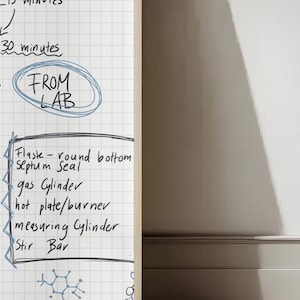 15 minutes
30 minutes
FROM
LAB
Flask - round bottom
septum seal
gas Cylinder
hot plate/burner
measuring Cylinder
Stir Bar